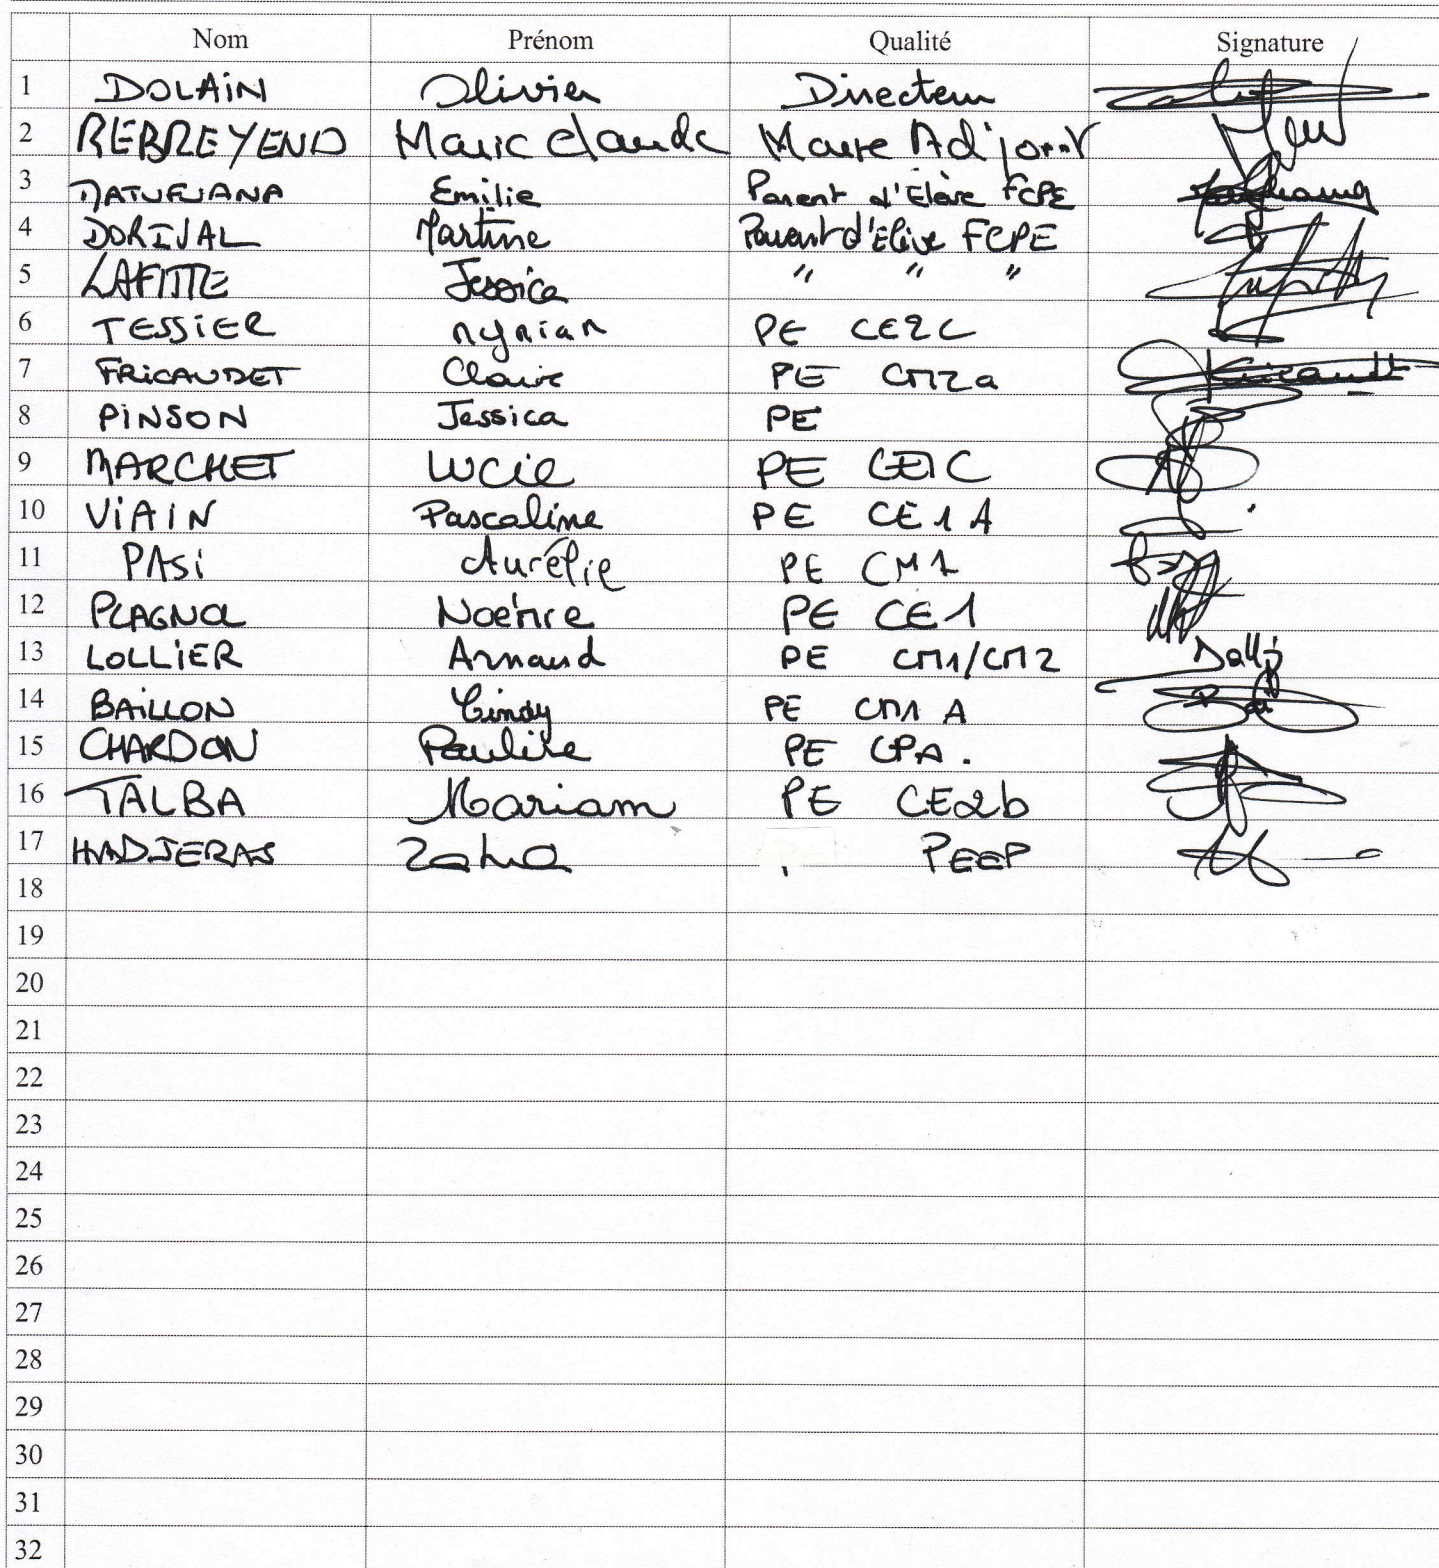 Nom Prénom Qualité Signature
1 DOLAIN Olivier Directeur
2 REBREYEND Marie Claude Maire Adjoint
3 Emilie Parent d'Elève FCPE
4 DORIVAL Martine Parent d'Elève FCPE
5 LAFITTE Jessica " " "
6 TESSIER Myriam PE CE2C
7 FRICAUDET Claire PE CM2a
8 PINSON Jessica PE
9 MARCHET Lucie PE CE1C
10 VIAIN Pascaline PE CE1A
11 PASI Aurélie PE CM1
12 PLAGNOL PE CE1
13 LOLLIER Arnaud PE CM1/CM2
14 BAILLON Cindy PE CM1 A
15 CHARDON Pauline PE CPA.
16 TALBA Mariam PE CE2b
17 PEEP
18
19
20
21
22
23
24
25
26
27
28
29
30
31
32